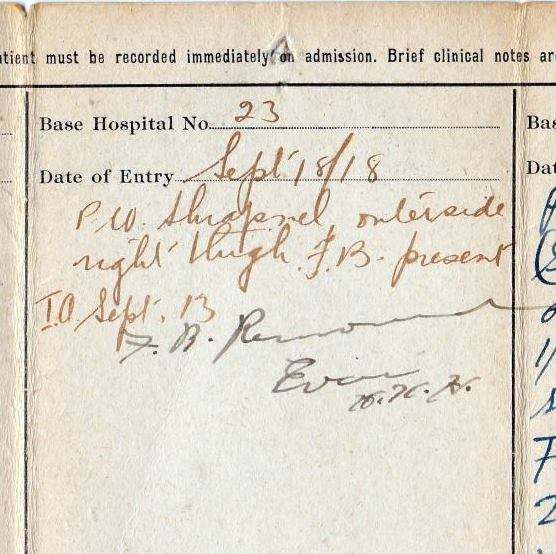 atient must be recorded immediately on admission. Brief clinical notes are
Base Hospital No. 23
Date of Entry Sept 18/18
P.W. Shrapnel, outerside
right thigh F.B. present
Sept. 13
F. B. Removed
Evac
Bas
Dat